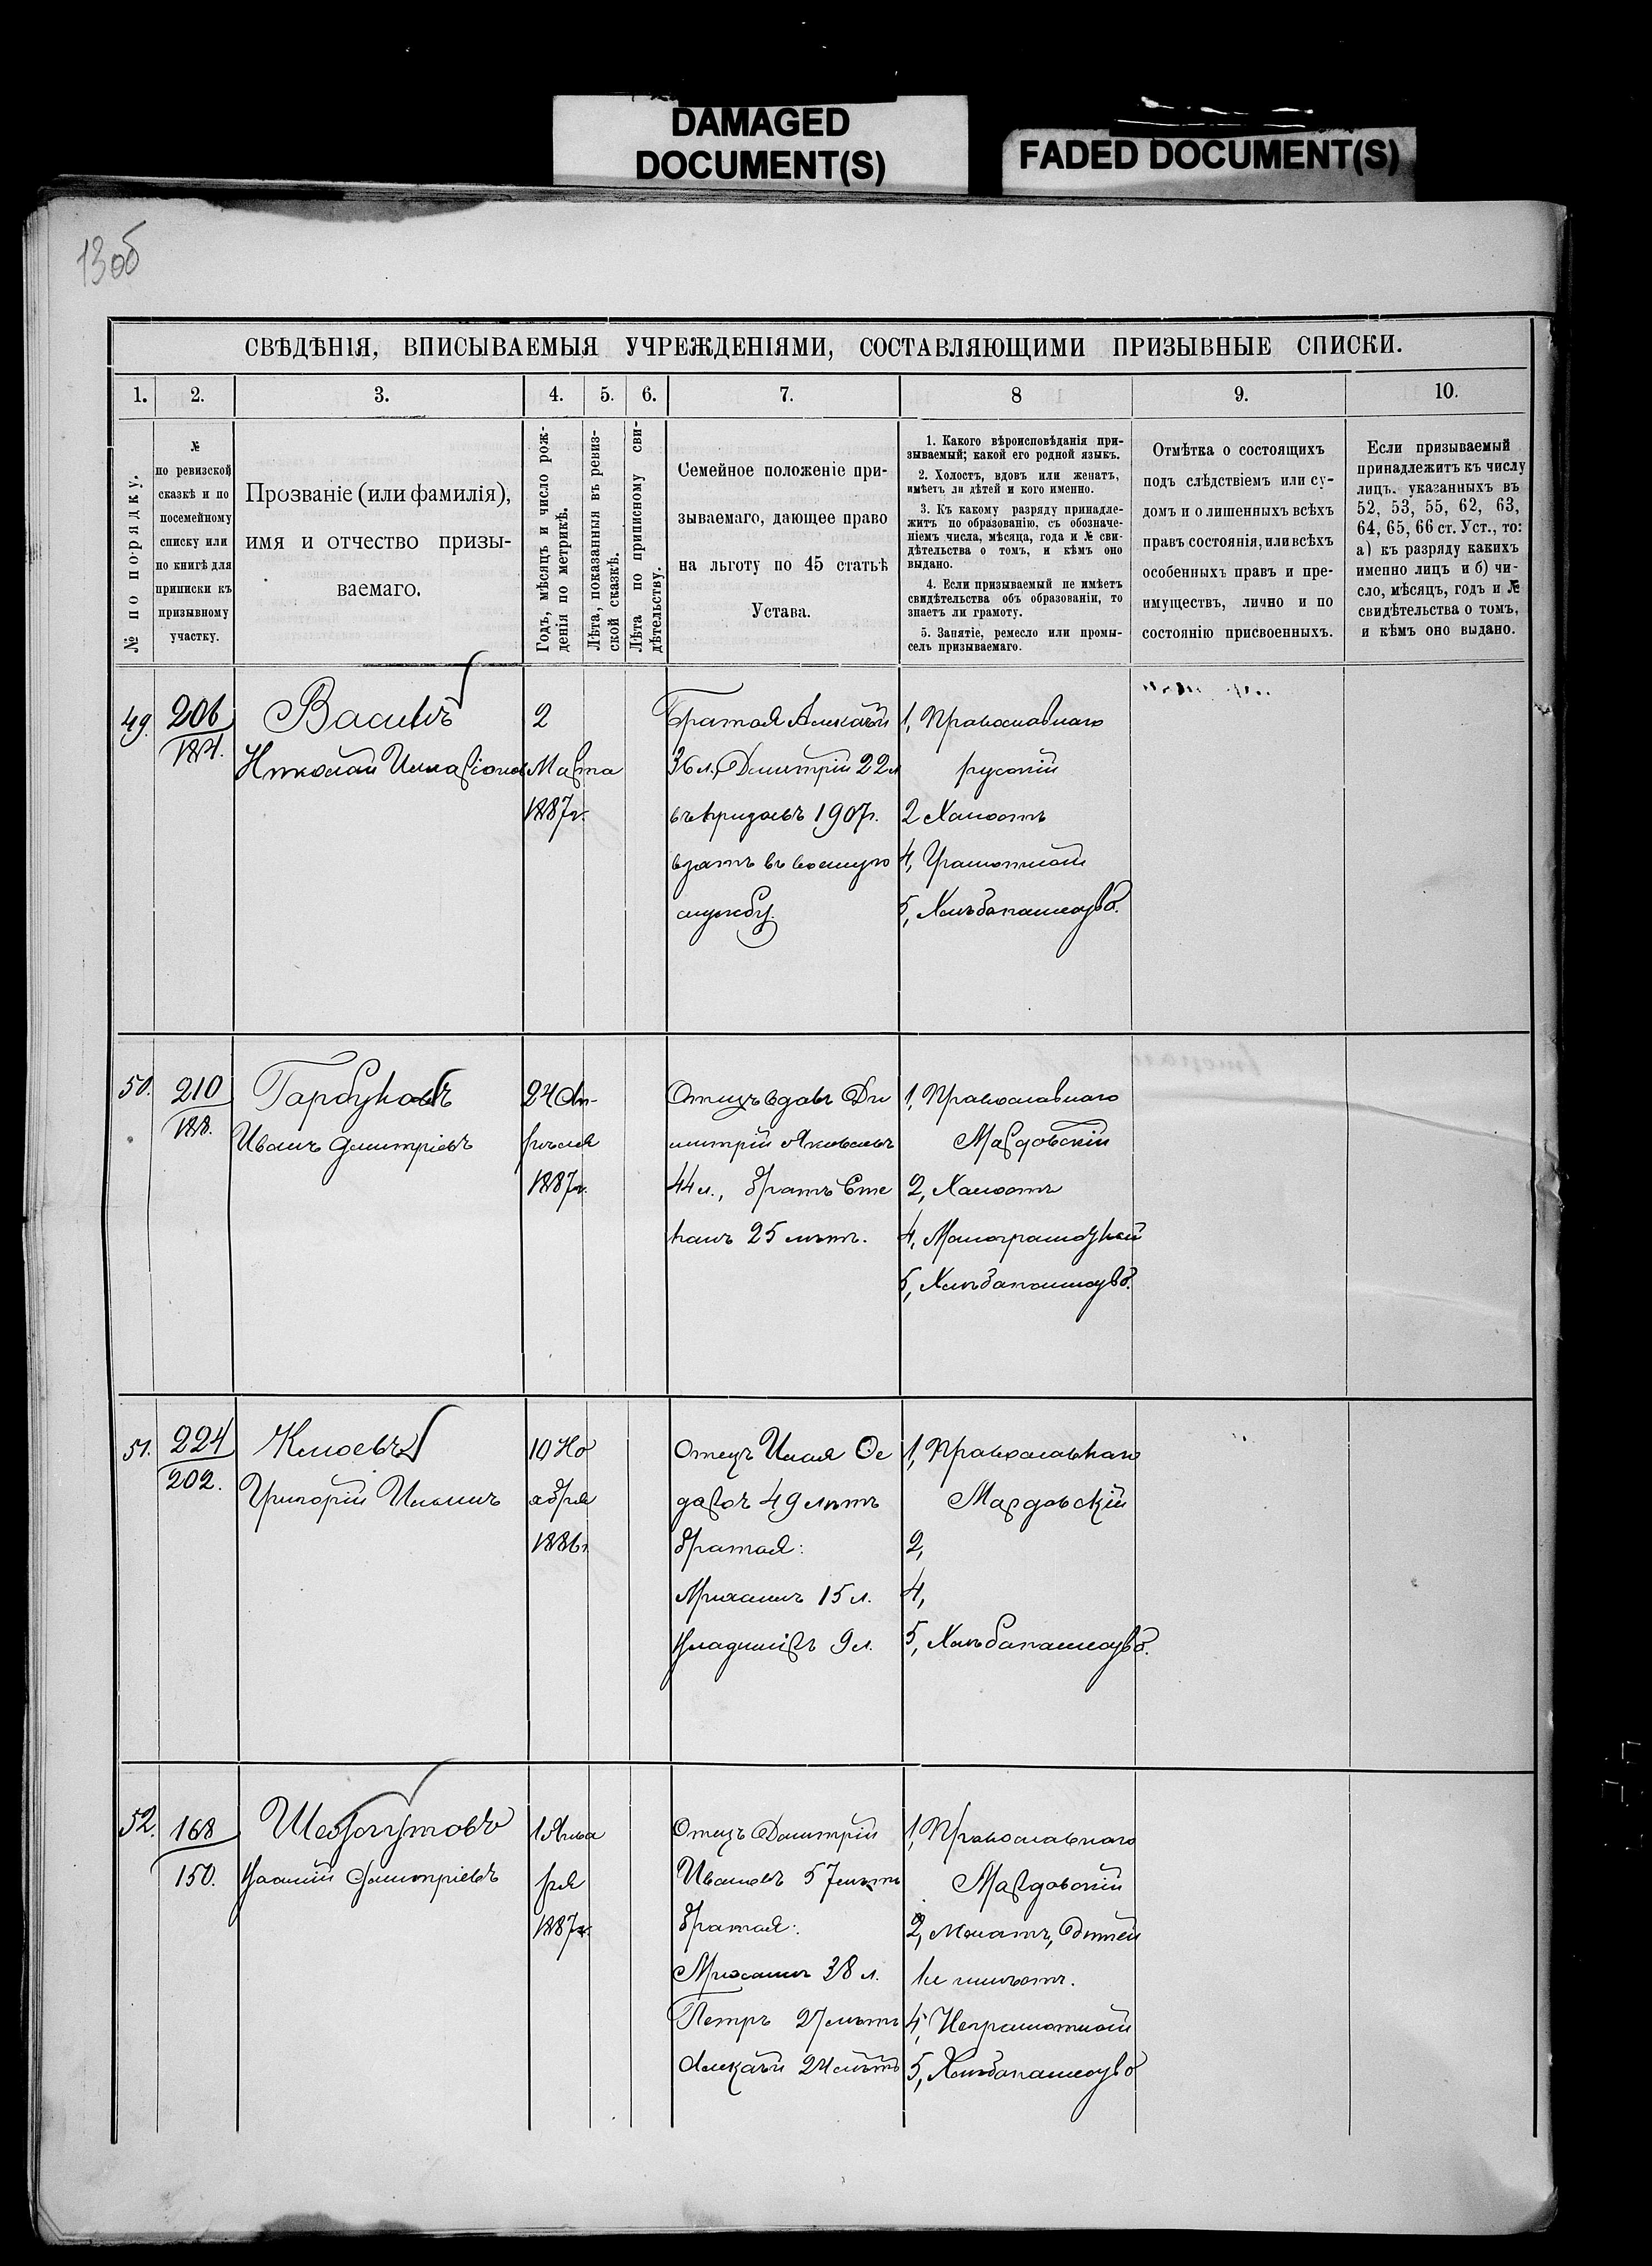 DAMAGED
DOCUMENT(S)
FADED DOCUMENT(S)
13об
СВѢДѢНІЯ, ВПИСЫВАЕМЫЯ УЧРЕЖДЕНІЯМИ, СОСТАВЛЯЮЩИМИ ПРИЗЫВНЫЕ СПИСКИ.
1. 2. 3. 4. 5. 6. 7. 8 9. 10.
№ по порядку.
№
по ревизской
сказкѣ и по
посемейному
списку или
по книгѣ для
приписки къ
призывному
участку.
Прозваніе (или фамилія),
имя и отчество призы-
ваемаго.
Годъ, мѣсяцъ и число рож-
денія по метрикѣ.
Лѣта, показанныя въ ревиз-
ской сказкѣ.
Лѣта по приписному сви-
дѣтельству.
Семейное положеніе при-
зываемаго, дающее право
на льготу по 45 статьѣ
Устава.
1. Какого вѣроисповѣданія при-
зываемый; какой его родной языкъ.
2. Холостъ, вдовъ или женатъ,
имѣетъ ли дѣтей и кого именно.
3. Къ какому разряду принадле-
житъ по образованію, съ обозначе-
ніемъ числа, мѣсяца, года и № сви-
дѣтельства о томъ, и кѣмъ оно
выдано.
4. Если призываемый не имѣетъ
свидѣтельства объ образованіи, то
знаетъ ли грамоту.
5. Занятіе, ремесло или промы-
селъ призываемаго.
Отмѣтка о состоящихъ
подъ слѣдствіемъ или су-
домъ и о лишенныхъ всѣхъ
правъ состоянія, или всѣхъ
особенныхъ правъ и пре-
имуществъ, лично и по
состоянію присвоенныхъ.
Если призываемый
принадлежитъ къ числу
лицъ. указанныхъ въ
52, 53, 55, 62, 63,
64, 65, 66 ст. Уст., то:
а) къ разряду какихъ
именно лицъ и б) чи-
сло, мѣсяцъ, годъ и №
свидѣтельства о томъ,
и кѣмъ оно выдано.
49.
206
184.
Николай
2
Марта
1887г.
Братья Алексѣй
36 л., Дмитрій 22 л
1907г.
взятъ въ военную
службу.
1, Православнаго
русскій
2 Холостъ
4, Грамотной
5, Хлѣбопашество.
50.
210
188.
Гарбуновъ
Иванъ Дмитріевъ
24 Ап-
рѣля
1887г.
Отецъ вдовъ Ди
митрій Яковлевъ
44 л., братъ Сте
панъ 25 лѣтъ.
1, Православнаго
Мардовскій
2, Холостъ
4,
5, Хлѣбопашество.
51.
224
202.
Клюевъ
Григорій Ильинъ
10 Но
ября
1886г
Отецъ Илья Ѳе
доровъ 49 лѣтъ
братья:
Михаилъ 15 л.
Владиміръ 9 л.
1, Православнаго
Мардовскій
2,
4,
5, Хлѣбопашество.
52.
168
150.
Василій Дмитріевъ
1 Янва
ря
1887г.
Отецъ Дмитрій
Ивановъ 57 лѣтъ
братья:
Михаилъ 38 л.
Петръ 27 лѣтъ
Алексѣй 24 лѣтъ
1, Православнаго
Мардовскій
2, Женатъ, дѣтей
не имѣетъ.
4, Неграмотной
5, Хлѣбопашество